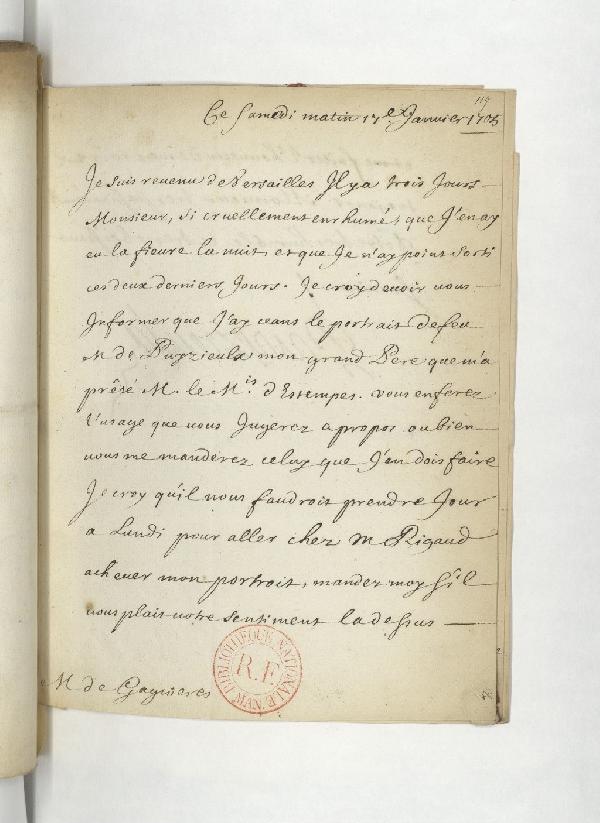 119
Ce Samedi matin 17e Janvier 1705
Je suis reuenu de Versailles Il y a trois Jours
Monsieur, si cruellement enrhumé, que J'en ay
eu la fieure la nuit, et que Je n'ay point sorti
ces deux derniers Jours. Je croy deuoir vous
Informer que J'ay ceans le portrait de feu
M. de Puyzieulx mon grand Pere que m'a
présé M. le Mis. d'Estempes. vous en ferez
l'usage que vous Jugerez a propos ou bien
vous me manderez celuy que J'en dois faire
Je croy qu'il nous faudroit prendre Jour
a Lundi pour aller chez M Rigaud
acheuer mon portrait, mandez moy s'il
vous plait votre sentiment la dessus
M de Gagnieres
BIBLIOTHEQUE NATIONALE MAN.
R.F.